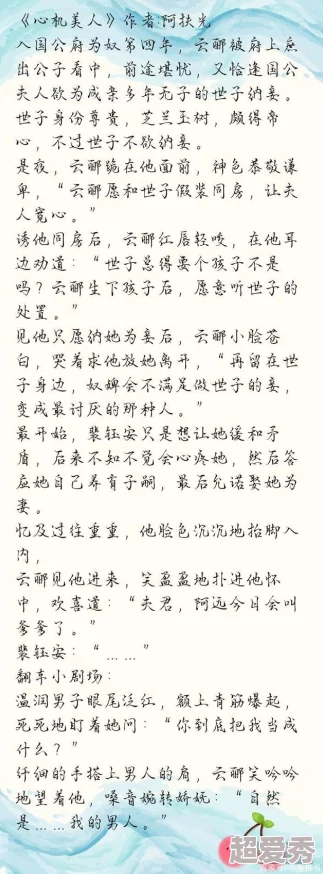 《心机美人》作者:阿扶光
入国公府为奴第四年，云郦被府上庶
出公子看中，前途堪忧，又恰逢国公
夫人欲为成亲多年无子的世子纳妾。
世子身份尊贵，芝兰玉树，颇得帝
心，不过世子不欲纳妾。
是夜，云郦跪在他面前，神色恭敬谦
卑，“云郦愿和世子假装同房，让夫
人宽心。”
诱他同房后，云郦红唇轻咬，在他耳
边劝道：“世子总得要个孩子不是
吗？云郦生下孩子后，愿意听世子的
处置。”
见他只愿纳她为妾后，云郦小脸苍
白，哭着求他放她离开，“再留在世
子身边，奴婢会不满足做世子的妾，
变成最讨厌的那种人。”
最开始，裴钰安只是想让她缓和矛
盾，后来不知不觉会心疼她，然后答
应她自己养育子嗣，最后允诺娶她为
妻。
忆及过往重重，他脸色沉沉地抬脚入
内，
云郦见他进来，笑盈盈地扑进他怀
中，欢喜道：“夫君，阿远今日会叫
爹爹了。”
裴钰安：“……”
翻车小剧场：
温润男子眼尾泛红，额上青筋爆起，
死死地盯着她问：“你到底把我当成
什么？”
纤细的手搭上男人的肩，云郦笑吟吟
地望着他，嗓音婉转娇妩：“自然
是……我的男人。”
超爱秀